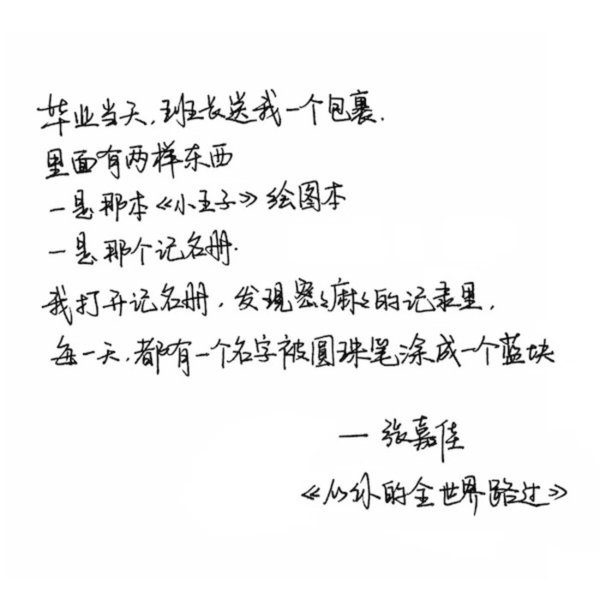 毕业当天，班长送我一个包裹.
里面有两样东西
一是那本《小王子》绘图本
一是那个记名册.
我打开记名册，发现密々麻々的记录里，
每一天，都有一个名字被圆珠笔涂成一个蓝块
— 张嘉佳
《从你的全世界路过》